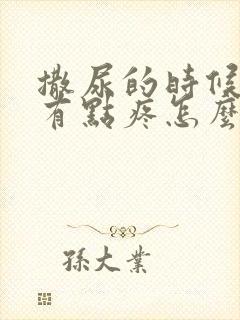 撒尿的時候
有點疼怎麼
孫大業